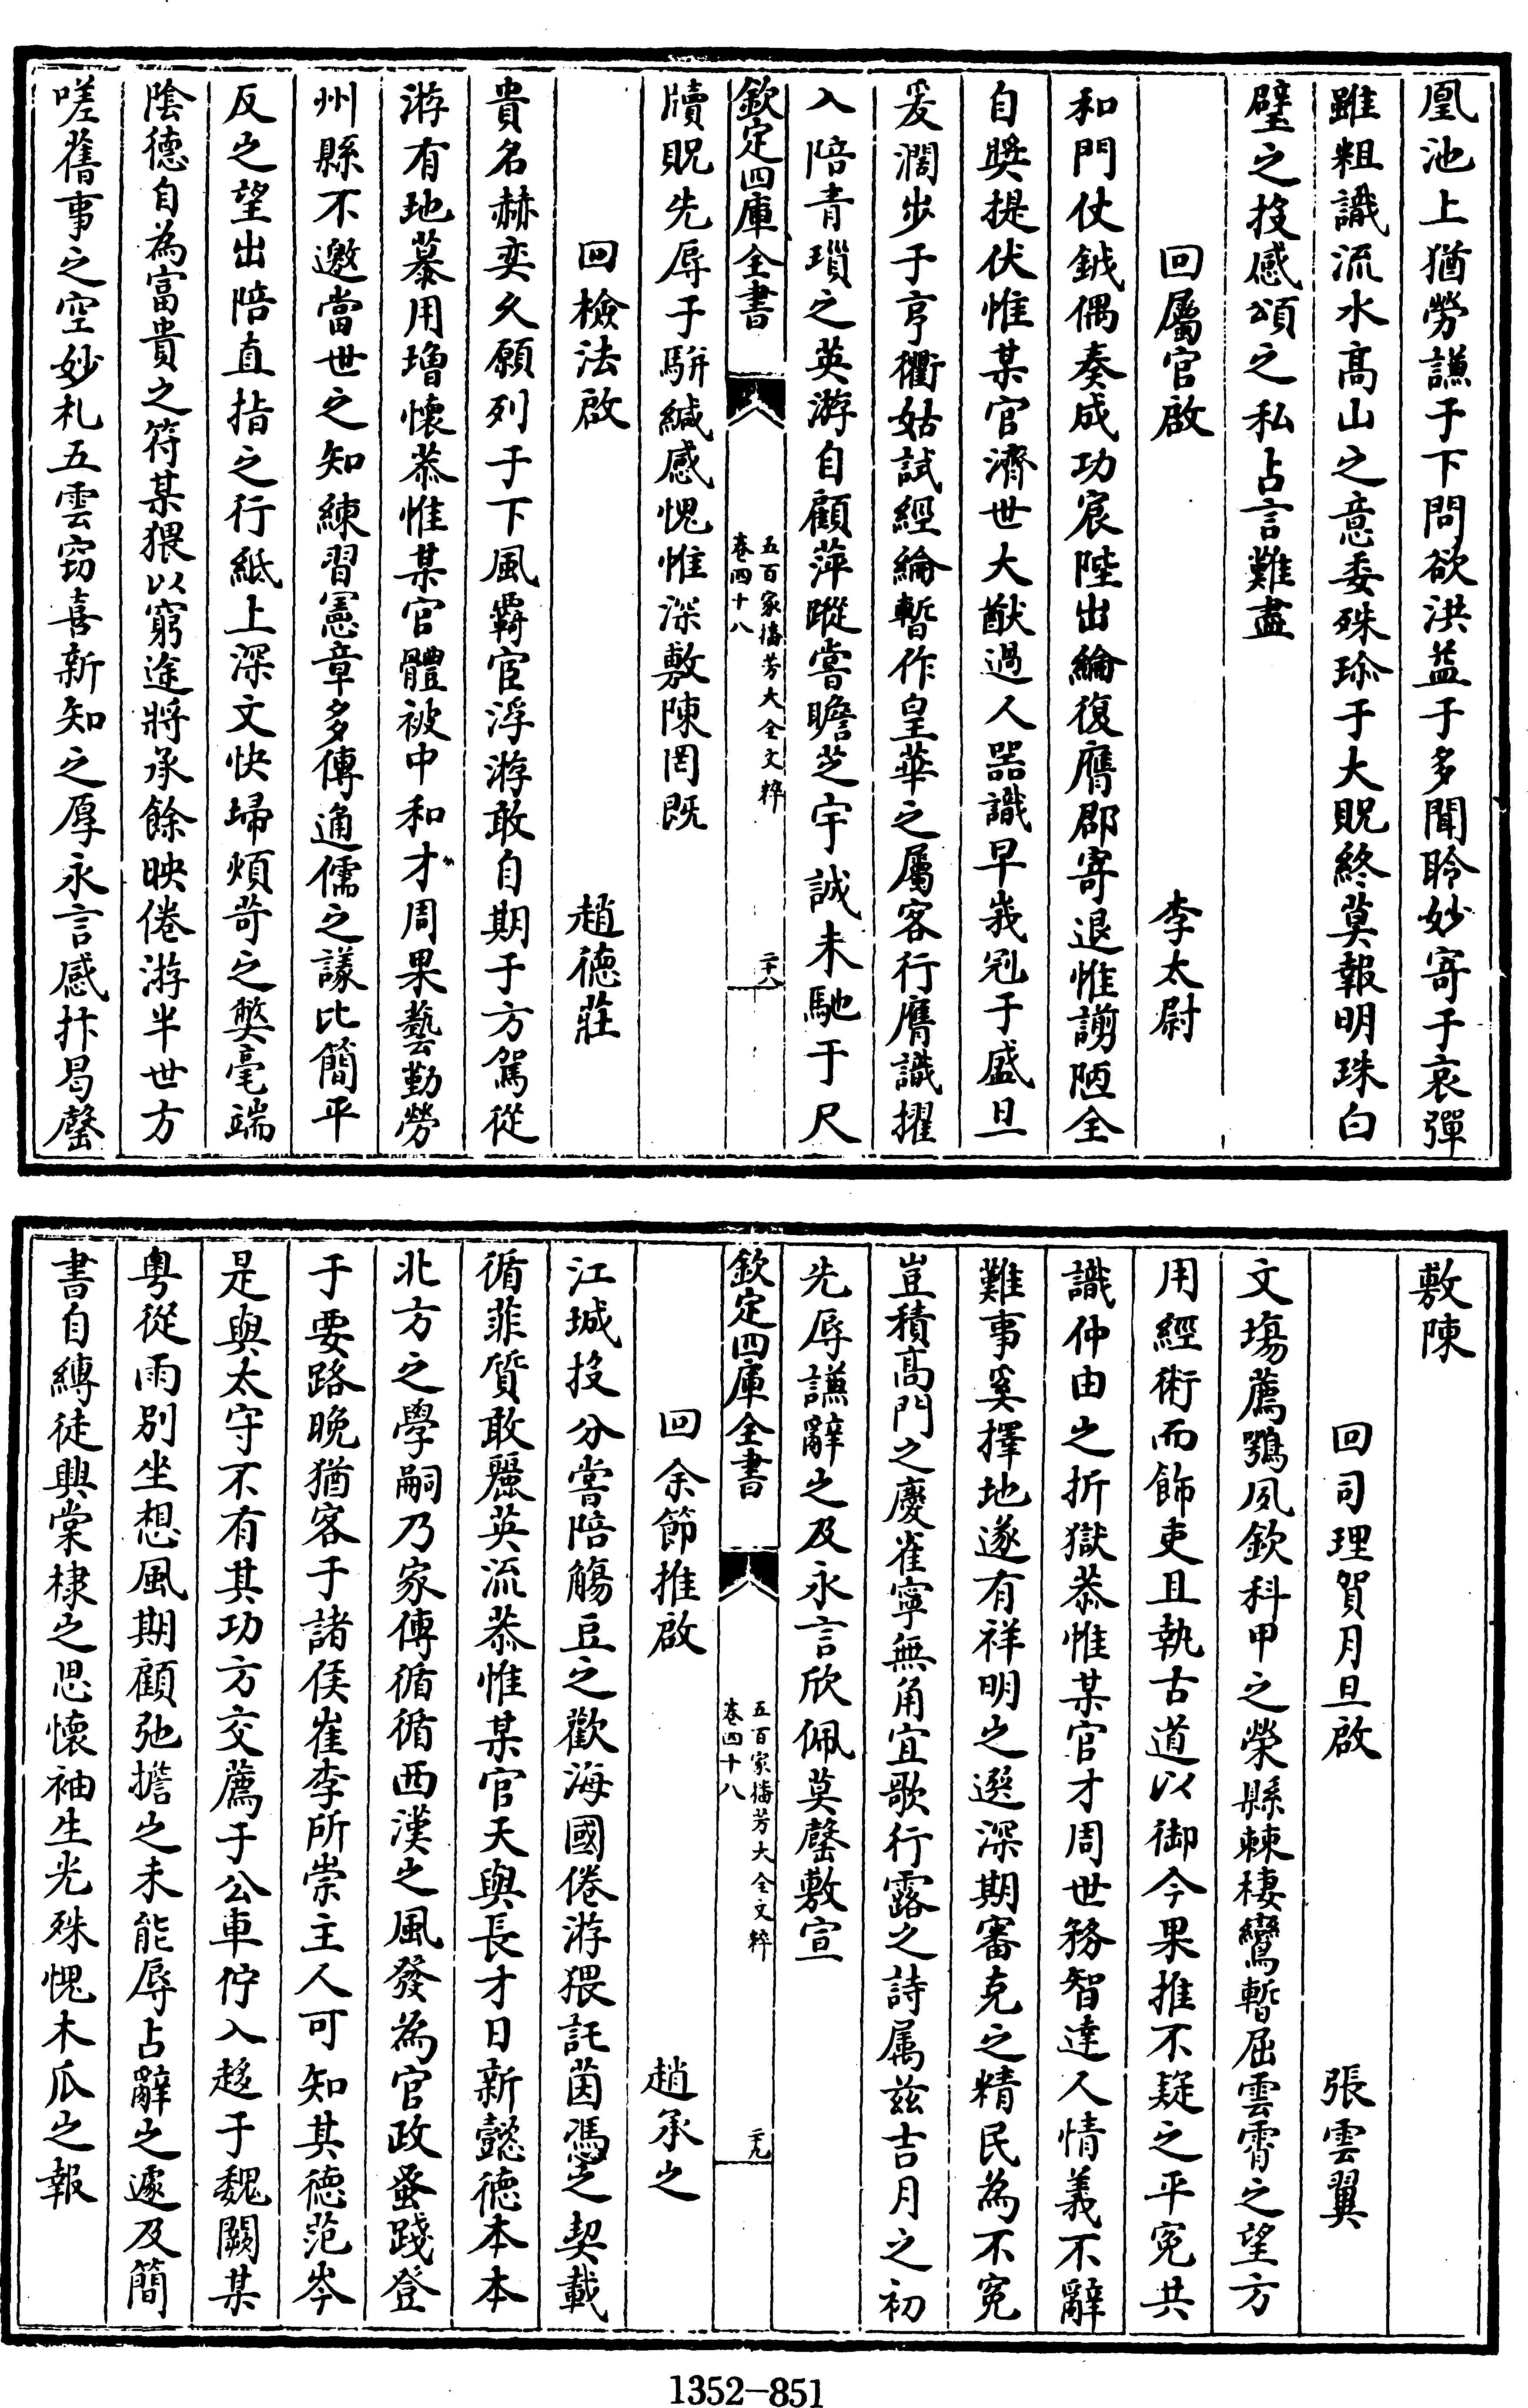 凰池上猶勞謙于下問欲洪益于多聞聆妙寄于哀彈
雖粗識流水高山之意委殊珍于大貺終莫報明珠白
璧之投感頌之私占言難盡
回屬官啟 李太尉
和門仗鉞偶奏成功宸陛出綸復膺郡寄退惟謭陋全
自奬提伏惟某官濟世大猷過人器識早峩冠于盛旦
爰濶步于亨衢姑試經綸暫作皇華之屬客行膺識擢
入陪青瑣之英游自顧萍蹤嘗瞻芝宇誠未馳于尺
欽定四庫全書 五百家播芳大全文粹 卷四十八 二十八
牘貺先辱于駢緘感愧惟深敷陳罔既
回檢法啟 趙德莊
貴名赫奕久願列于下風覊宦浮游敢自期于方駕從
游有地慕用增懷恭惟某官體被中和才周果藝勤勞
州縣不邀當世之知練習憲章多傳通儒之議比簡平
反之望出陪直指之行紙上深文快埽煩苛之弊毫端
陰德自為富貴之符某猥以窮途將承餘映倦游半世方
嗟舊事之空妙札五雲窃喜新知之厚永言感抃曷罄
敷陳
回司理賀月旦啟 張雲翼
文塲薦鶚夙欽科甲之榮縣棘棲鸞暫屈雲霄之望方
用經術而飾吏且執古道以御今果推不疑之平寃共
識仲由之折獄恭惟某官才周世務智達人情義不辭
難事奚擇地遂有祥明之選深期審克之精民為不寃
豈積高門之慶雀寧無角宜歌行露之詩属兹吉月之初
先辱謙辭之及永言欣佩莫罄敷宣
欽定四庫全書 五百家播芳大全文粹 卷四十八 二十九
回余節推啟 趙承之
江城投分嘗陪觴豆之歡海國倦游猥託茵馮之契載
循菲質敢麗英流恭惟某官天與長才日新懿德本本
北方之學嗣乃家傳循循西漢之風發為官政蚤踐登
于要路晚猶客于諸侯崔李所崇主人可知其德范岑
是與太守不有其功方交薦于公車佇入趍于魏闕某
粤從雨别坐想風期顧弛擔之未能辱占辭之遽及簡
書自縛徒興棠棣之思懷袖生光殊愧木瓜之報
1352-851